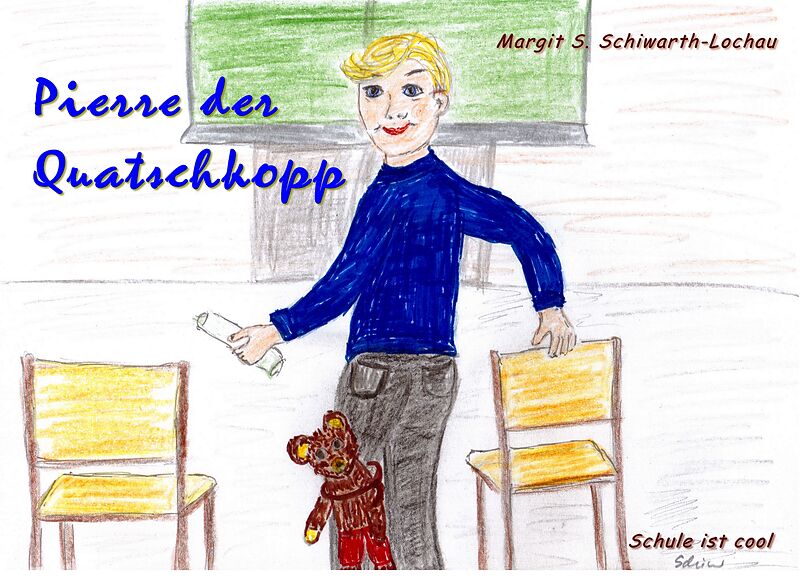 Margit S. Schiwarth-Lochau
Pierre der
Quatschkopp
Schule ist cool